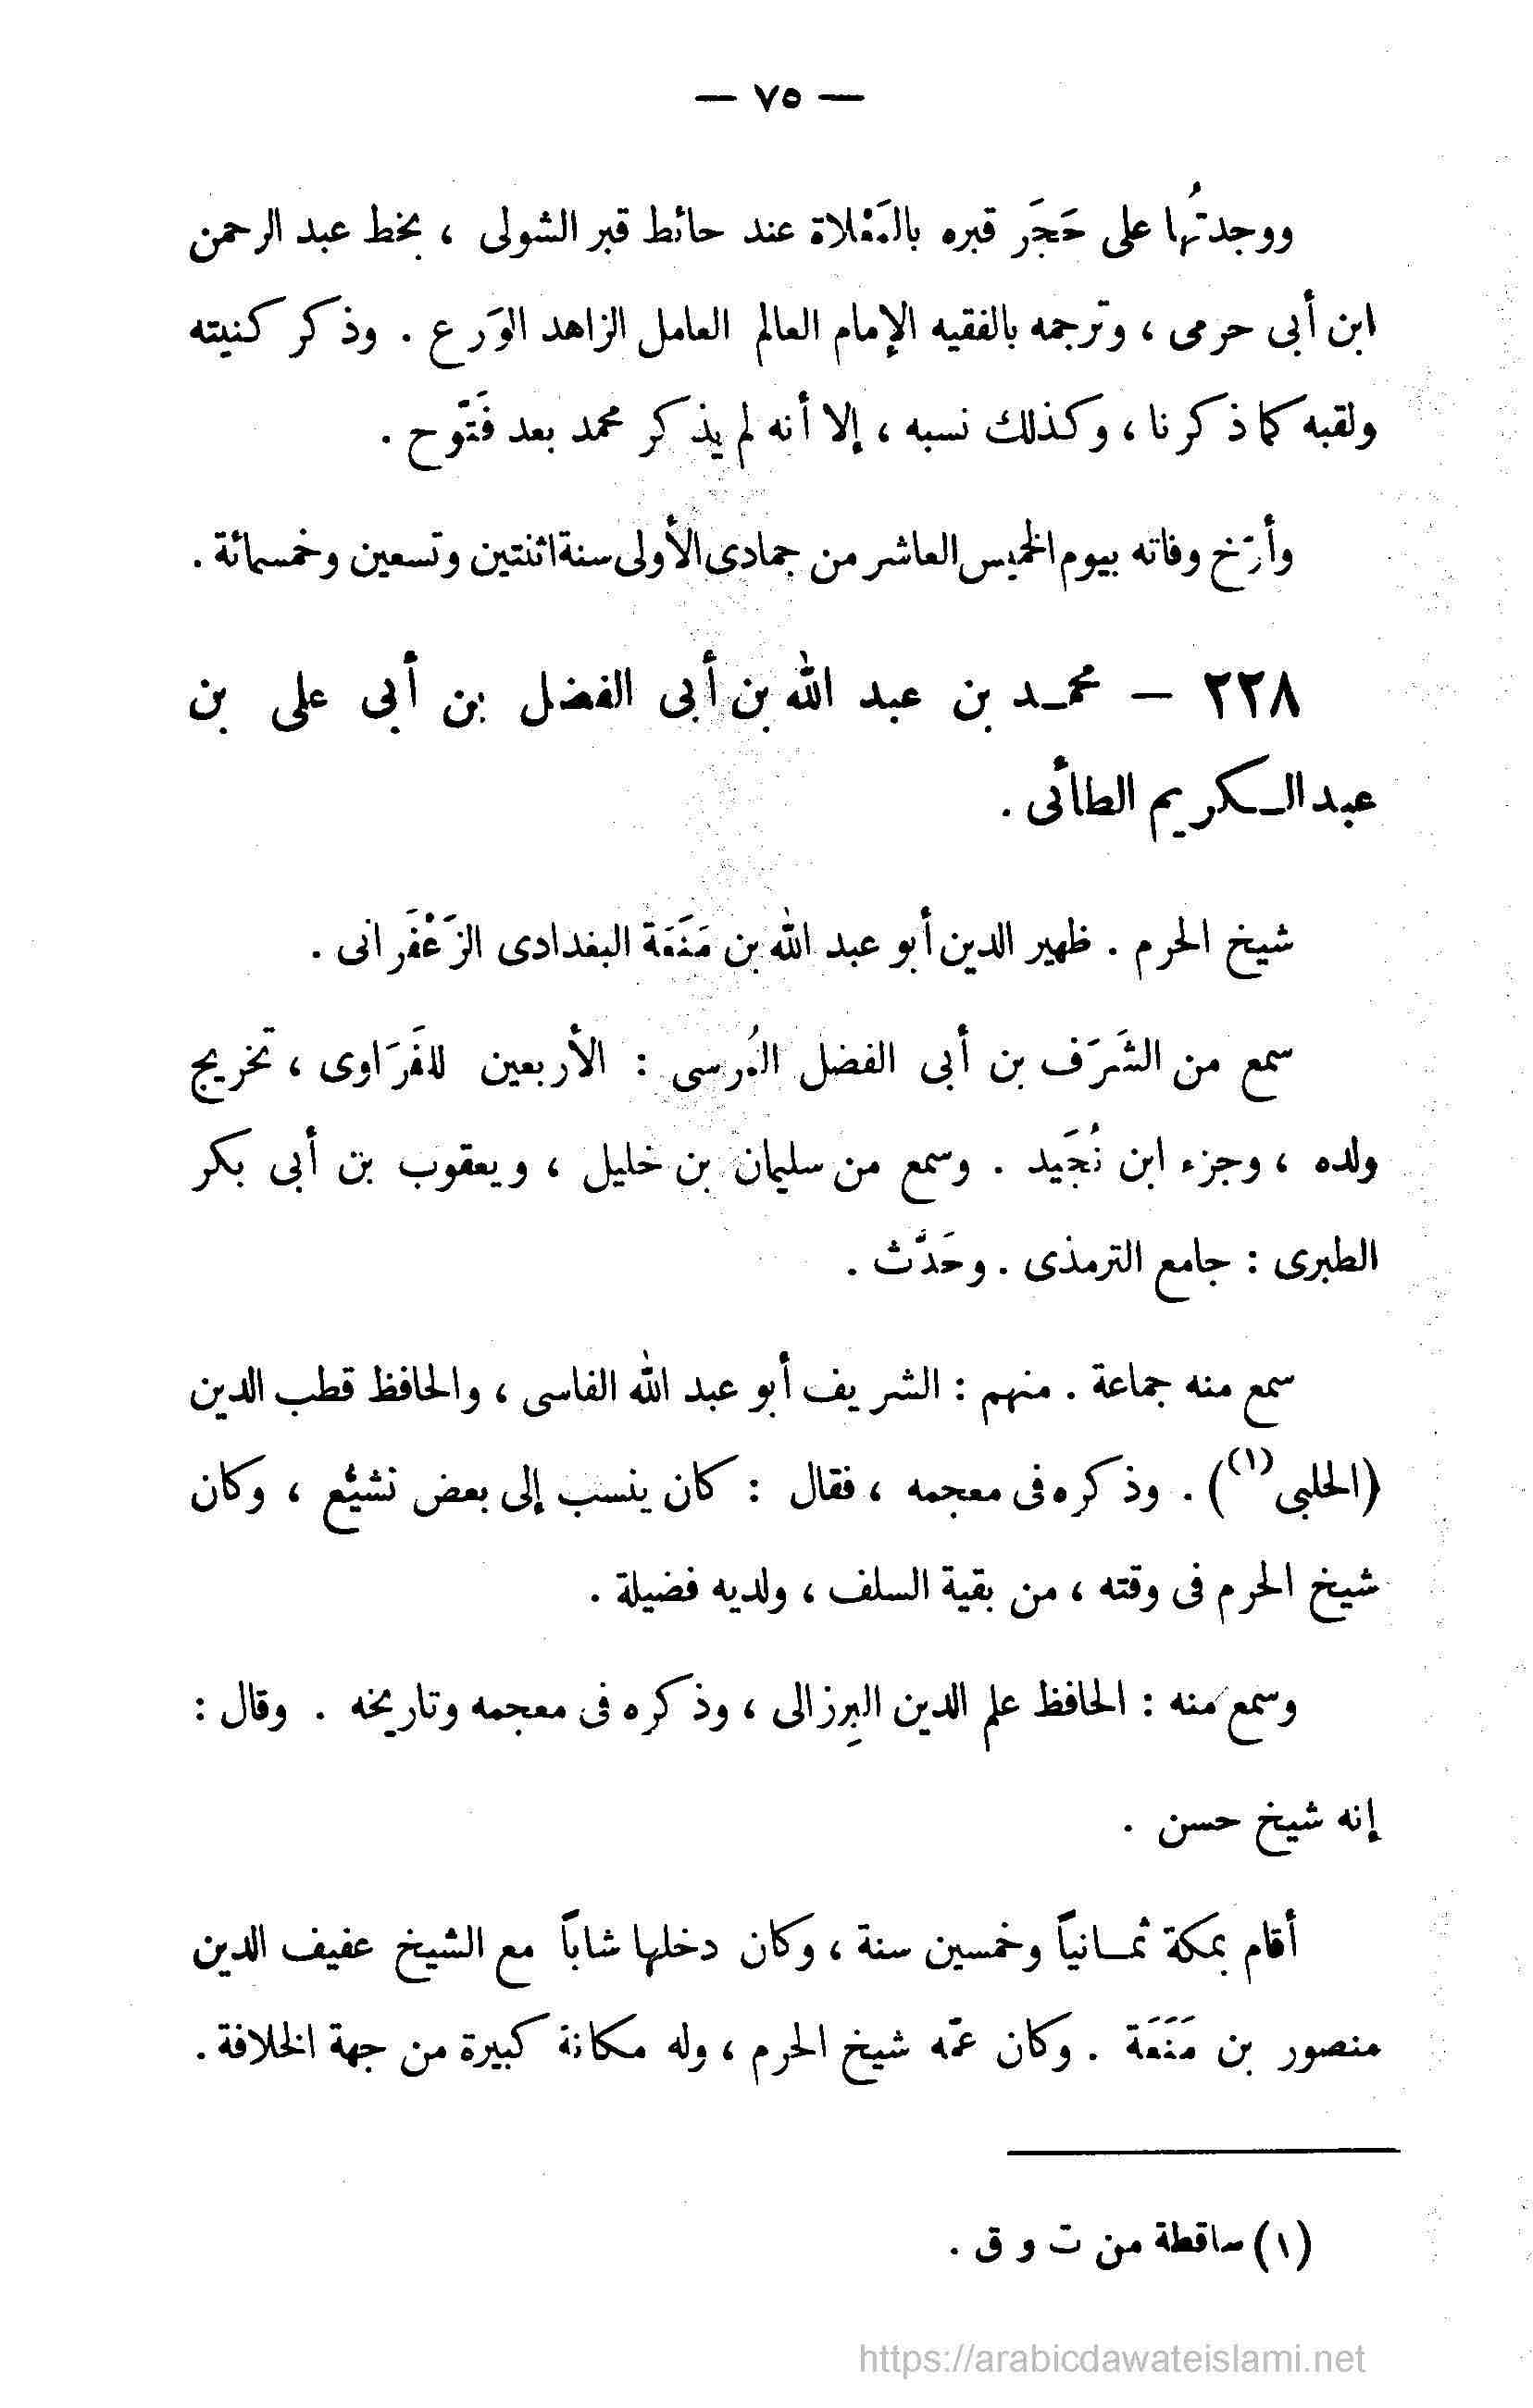 — ٧٥ —
ووجدتُها على حَجَر قبره بالمَعْلاة عند حائط قبر الشولى ، بخط عبد الرحمن
ابن أبى حرمى ، وترجمه بالفقيه الإمام العالم العامل الزاهد الوَرع . وذكر كنيته
ولقبه كما ذكرنا ، وكذلك نسبه ، إلا أنه لم يذكر محمد بعد فَتّوح .
وأرّخ وفاته بيوم الخميس العاشر من جمادى الأولى سنة اثنتين وتسعين وخمسمائة .
٢٢٨ – محمـد بن عبد الله بن أبى الفضل بن أبى على بن
عبد الـكريم الطائى .
شيخ الحرم . ظهير الدين أبو عبد الله بن مَنَعَة البغدادى الزَعْفَرانى .
سمع من الشَرَف بن أبى الفضل المُرسى : الأربعين للفَرَاوى ، تخريج
ولده ، وجزء ابن نُجَيد . وسمع من سليمان بن خليل ، ويعقوب بن أبى بكر
الطبرى : جامع الترمذى . وحَدَّث .
سمع منه جماعة . منهم : الشريف أبو عبد الله الفاسى ، والحافظ قطب الدين
(الحلبى(١)) . وذكره فى معجمه ، فقال : كان ينسب إلى بعض تشيُّع ، وكان
شيخ الحرم فى وقته ، من بقية السلف ، ولديه فضيلة .
وسمع منه : الحافظ علم الدين البِرزالى ، وذكره فى معجمه وتاريخه . وقال :
إنه شيخ حسن .
أقام بمكة ثمـانياً وخمسين سنة ، وكان دخلها شاباً مع الشيخ عفيف الدين
منصور بن مَنَعَة . وكان عمّه شيخ الحرم ، وله مكانة كبيرة من جهة الخلافة .
(١) ساقطة من ت و ق .
https://arabicdawateislami.net